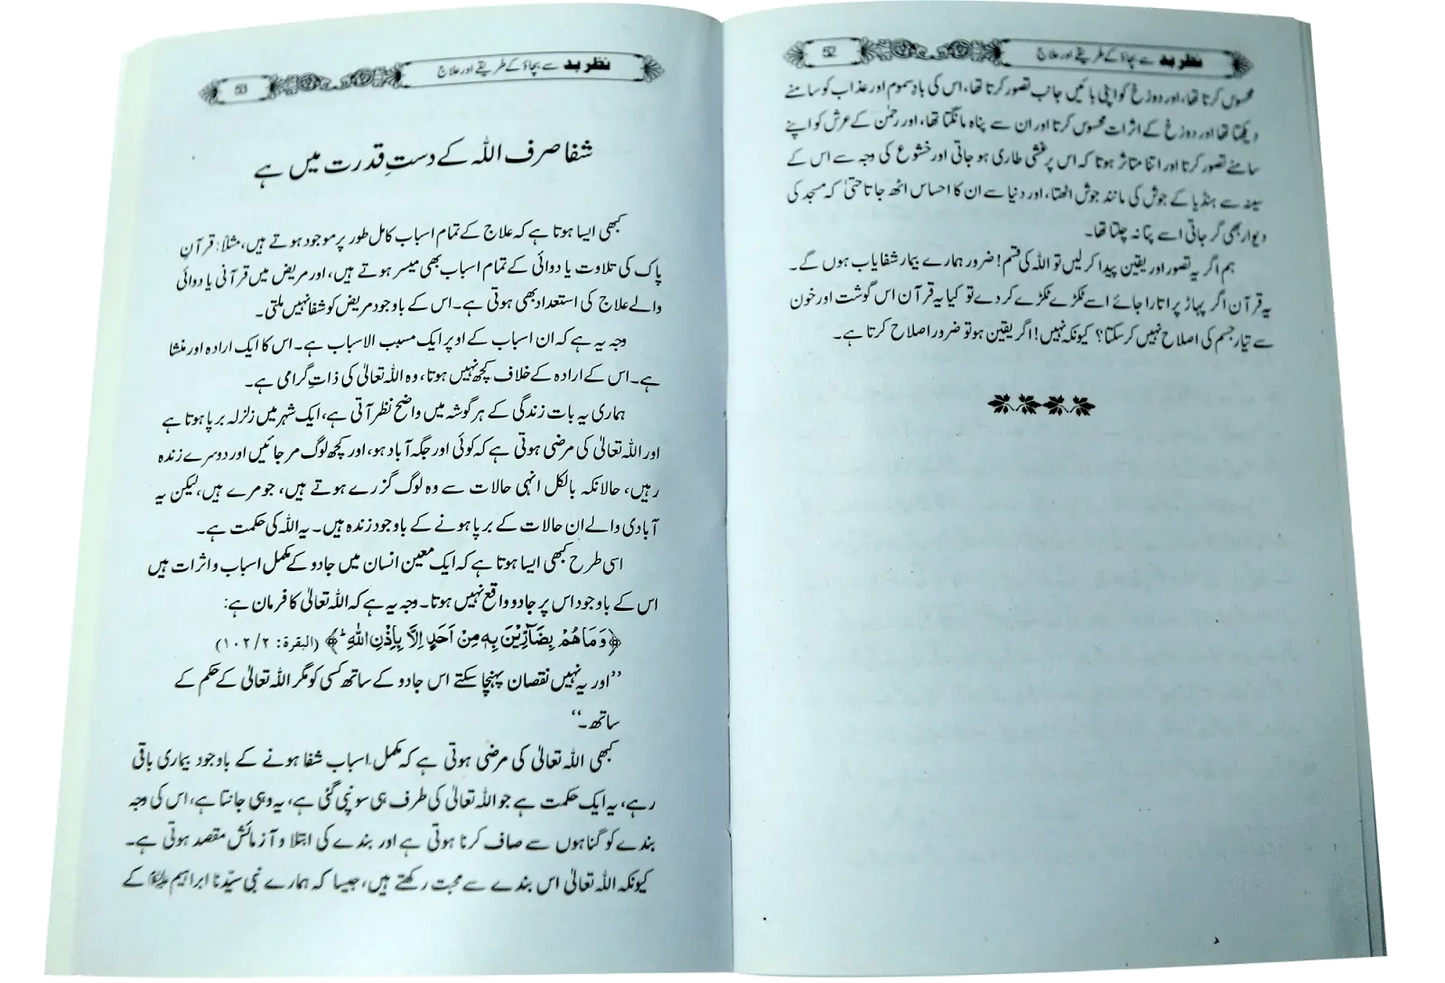 52
نظر بد سے بچاؤ کے طریقے اور علاج
محسوس کرتا تھا، اور دوزخ کو اپنی بائیں جانب تصور کرتا تھا، اس کی بادِ سموم اور عذاب کو سامنے
دیکھتا تھا اور دوزخ کے اثرات محسوس کرتا اور ان سے پناہ مانگتا تھا، اور رحمٰن کے عرش کو اپنے
سامنے تصور کرتا اور اتنا متاثر ہوتا کہ اس پر غشی طاری ہو جاتی اور خشوع کی وجہ سے اس کے
سینہ سے ہنڈیا کے جوش کی مانند جوش اٹھتا، اور دنیا سے ان کا احساس اٹھ جاتا حتیٰ کہ مسجد کی
دیوار بھی گر جاتی اسے پتا نہ چلتا تھا۔
ہم اگر یہ تصور اور یقین پیدا کر لیں تو اللہ کی قسم! ضرور ہمارے بیمار شفایاب ہوں گے۔
یہ قرآن اگر پہاڑ پر اتارا جائے اسے ٹکڑے ٹکڑے کر دے تو کیا یہ قرآن اس گوشت اور خون
سے تیار جسم کی اصلاح نہیں کر سکتا؟ کیونکہ نہیں! اگر یقین ہو تو ضرور اصلاح کرتا ہے۔
53
نظر بد سے بچاؤ کے طریقے اور علاج
شفا صرف اللہ کے دستِ قدرت میں ہے
کبھی ایسا ہوتا ہے کہ علاج کے تمام اسباب کامل طور پر موجود ہوتے ہیں، مثلاً: قرآنِ
پاک کی تلاوت یا دوائی کے تمام اسباب بھی میسر ہوتے ہیں، اور مریض میں قرآنی یا دوائی
والے علاج کی استعداد بھی ہوتی ہے۔ اس کے باوجود مریض کو شفا نہیں ملتی۔
وجہ یہ ہے کہ ان اسباب کے اوپر ایک مسبب الاسباب ہے۔ اس کا ایک ارادہ اور منشا
ہے۔ اس کے ارادہ کے خلاف کچھ نہیں ہوتا، وہ اللہ تعالیٰ کی ذاتِ گرامی ہے۔
ہماری یہ بات زندگی کے ہر گوشہ میں واضح نظر آتی ہے، ایک شہر میں زلزلہ برپا ہوتا ہے
اور اللہ تعالیٰ کی مرضی ہوتی ہے کہ کوئی اور جگہ آباد ہو، اور کچھ لوگ مر جائیں اور دوسرے زندہ
رہیں، حالانکہ بالکل انہی حالات سے وہ لوگ گزرے ہوتے ہیں، جو مرے ہیں، لیکن یہ
آبادی والے ان حالات کے برپا ہونے کے باوجود زندہ ہیں۔ یہ اللہ کی حکمت ہے۔
اسی طرح کبھی ایسا ہوتا ہے کہ ایک معین انسان میں جادو کے مکمل اسباب و اثرات ہیں
اس کے باوجود اس پر جادو واقع نہیں ہوتا۔ وجہ یہ ہے کہ اللہ تعالیٰ کا فرمان ہے:
﴿وَمَا هُمْ بِضَآرِّيْنَ بِهٖ مِنْ اَحَدٍ اِلَّا بِاِذْنِ اللّٰهِ ؕ﴾ (البقرة: ١٠٢/٢)
’’اور یہ نہیں نقصان پہنچا سکتے اس جادو کے ساتھ کسی کو مگر اللہ تعالیٰ کے حکم کے
ساتھ۔‘‘
کبھی اللہ تعالیٰ کی مرضی ہوتی ہے کہ مکمل اسباب شفا ہونے کے باوجود بیماری باقی
رہے، یہ ایک حکمت ہے جو اللہ تعالیٰ کی طرف ہی سونپی گئی ہے، یہ وہی جانتا ہے، اس کی وجہ
بندے کو گناہوں سے صاف کرنا ہوتی ہے اور بندے کی ابتلا و آزمائش مقصد ہوتی ہے۔
کیونکہ اللہ تعالیٰ اس بندے سے محبت رکھتے ہیں، جیسا کہ ہمارے نبی سیّدنا ابراہیم علیہ السلام کے